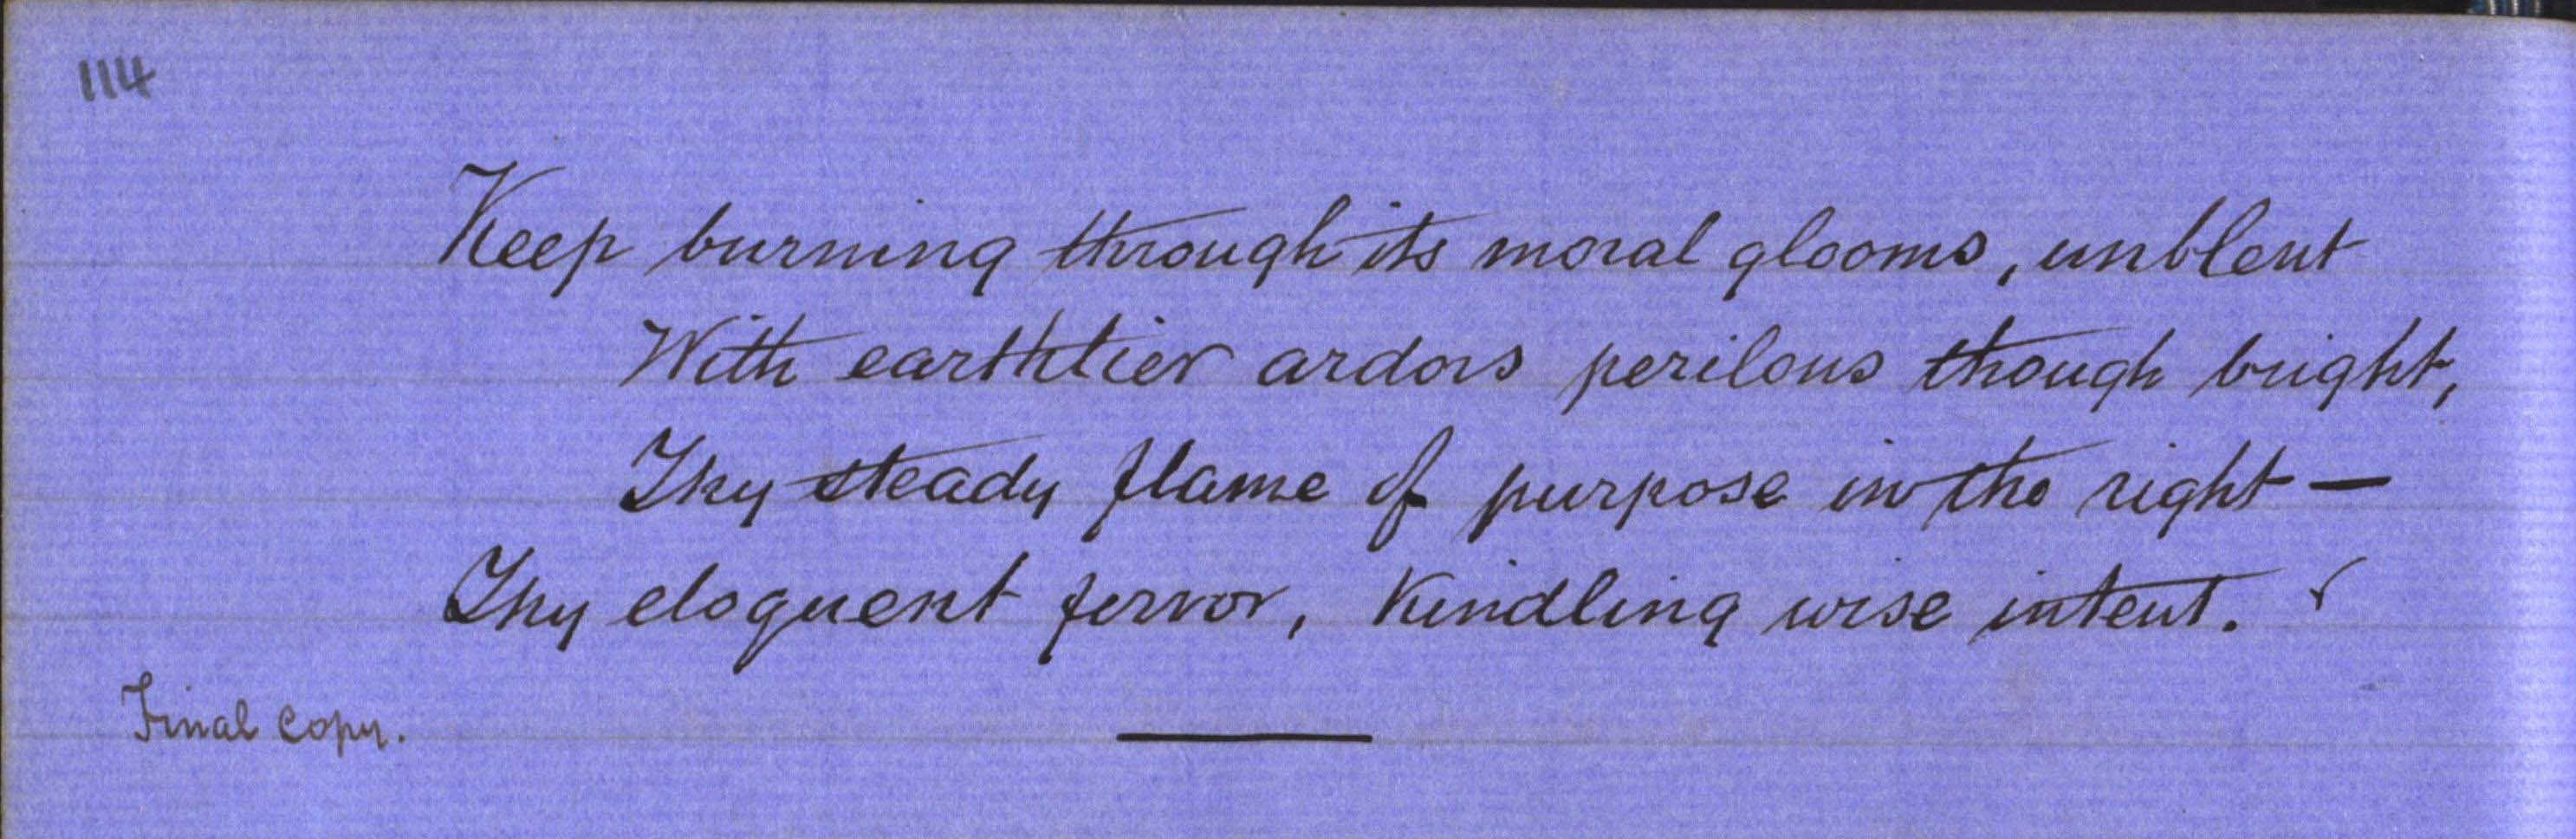 114
Keep burning through its moral glooms, unblent
With earthlier ardors perilous though bright,
Thy steady flame of purpose in the right —
Thy eloquent fervor, kindling wise intent. ✓
Final copy.